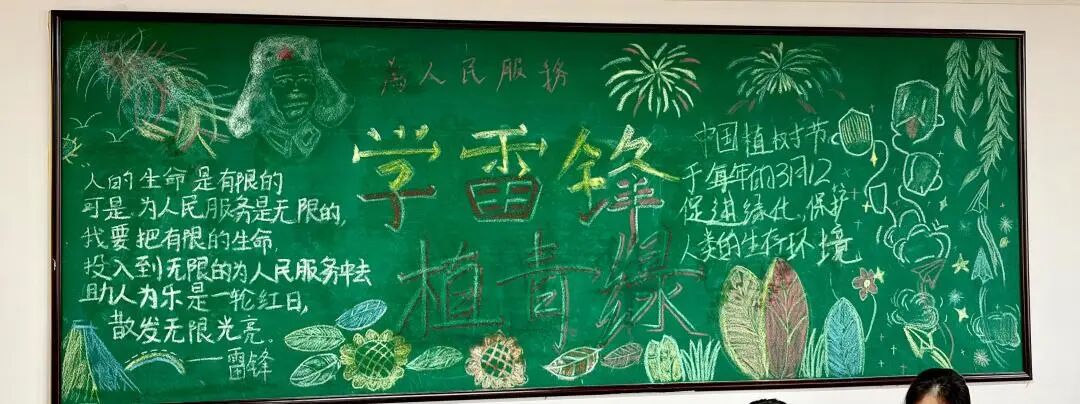 為人民服務
学雷锋
植青绿
"人的生命是有限的
可是,为人民服务是无限的,
我要把有限的生命,
投入到无限的为人民服务中去
助人为乐是一轮红日,
散发无限光亮.
——雷锋
中国植树节
于每年的3月12
促进绿化,保护
人类的生存环境